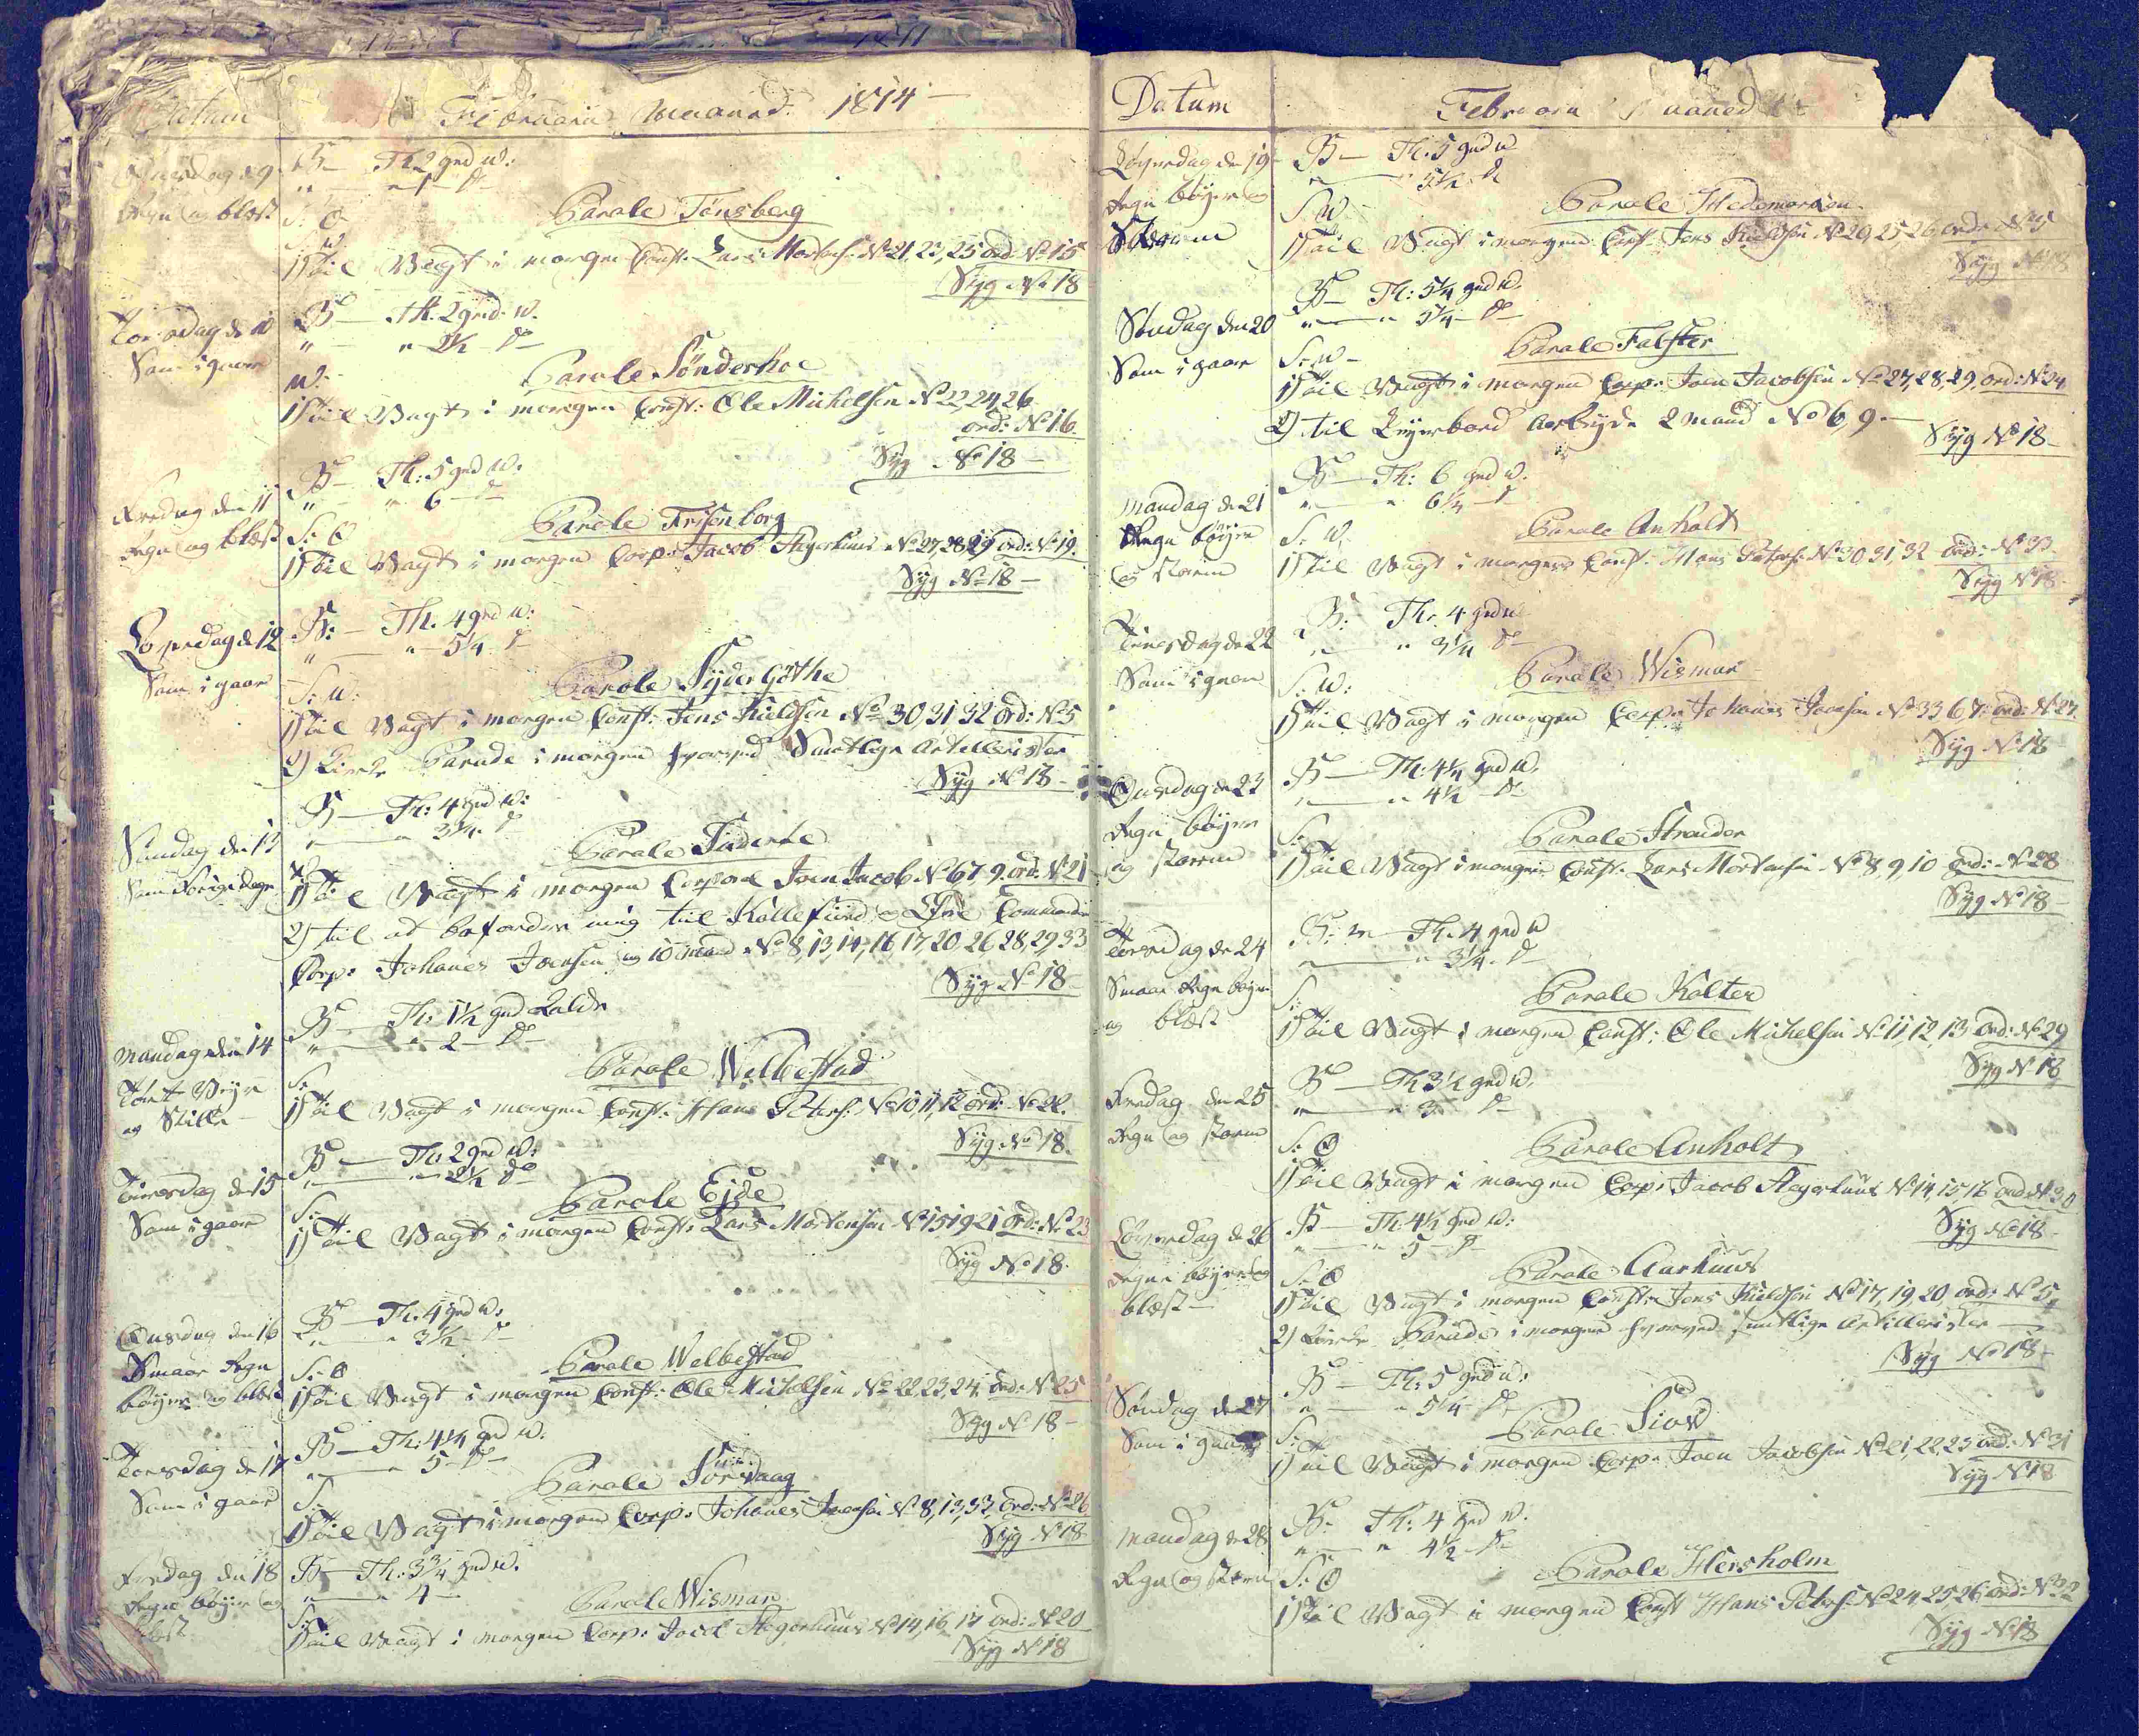 Datum
Februarii Maaned: 1814 —
Onsdag d 9
Regn og blæst
B — Th. 2 grd w:
S: O
Parole Tønsberg
1) til Vagt i morgen Const: Lars Mortens: No 21, 23, 25 ord: No 15
Syg No 18
Torsdag d 10
Som i gaar
B — Th. 2 grd: w.
" " 2½ do
W:
Parole Sønderhoe
1) til Vagt i morgen Const: Ole Michelsen No 22, 24, 26
ord: No 16
Syg No 18 —
Fredag den 11
Regn og blæst
B — Th: 5 grd w:
" " 6 do
S: O
Parole Frisenborg
1) til Vagt i morgen Corp: Jacob Hegerhuus No 27, 28, 29 ord: No 19
Syg No 18 —
Løverdag d 12
Som i gaar
B: — Th. 4 grd w:
" " 5¼ do
S: W:
Parole Sÿder Gøthe
1) til Vagt i morgen Const: Jens Kieldsen No 30, 31 32 ord: No 5
2) Kirke Parade i morgen hvorved Samtlige Artellerister
Syg No 18 —
Søndag den 13
B — Th: 4 grd w:
" " 3¼ do
W
1) til Vagt i morgen Corporal Joen Jacob No 6 7 9 ord: No 21
2) til at befordre mig til Kallefiird
Corp: Johanes Joensen og 10 mand No 8, 13, 14, 16, 17, 20 26 28, 29, 33
Syg No 18 —
Mandag den 14
Tørt Veyr
og Stille —
B — Th: 1½ grd Kalde
" " 2 — do
S:
Parole Welbestad
1) til Vagt i morgen Const: Hans Peters: No 10, 11, 12 ord: No 22.
Syg No 18.
Tirsdag den 15
Som i gaar
B — Th: 2 grd w:
" " 2½ do
S:
Parole Ejde
1) til Vagt i morgen Const: Lars Mortensen No 15 19 21 ord: No 23
Syg No 18.
Onsdag den 16
Smaae Regn
bøyer og blæst
B — Th. 4 grd w:
" " 3½ do
S: O
Parole Welbestad
1) til Vagt i morgen Const: Ole Michelsen No 22, 23, 24, ord: No 25
Syg No 18 —
Torsdag d 17
Som i gaar
B — Th: 4¼ grd w:
" " 5 do
S:
Parole Sørvaag
1) til Vagt i morgen Corp: Johanes Joensen No 8, 13, 33, ord: No 26
Syg No 18
Fredag den 18
Regn bøyer og
blæst
B — Th: 3¾ grd w.
" " 4 —
S:
Parole Wismar
1) til Vagt i morgen Corp: Jacob Hegerhuus No 14, 16, 17 ord: No 20
Syg No 18
Datum
Februarii Maaned
Løverdag den 19
Regn bøyer og
Storm
B — Th: 5 grd w
" " 5½ do
S: W.
Parole Hedemarken
1) til Vagt i morgen Const: Jens Kieldsen No 20, 25 26 ord: No 5
Syg No 18
Søndag den 20
Som i gaar
B — Th: 5¼ grd w.
" " 5¼ do
S: W —
Parole Falster
1) til Vagt i morgen Corp: Joen Jacobsen No 27, 28, 29, ord: No 24
2) til 2 mand No 6, 9. —
Syg No 18 —
Mandag den 21
Regn bøyer
og storm
B — Th: 6 grd w.
" " 6¼ do
S: W:
Parole Anholt
1) til Vagt i morgen Const: Hans Peters: No 30, 31, 32 ord: No 33
Syg No 18 —
Tirsdag den 22
Som i gaar
B: Th: 4 grd w
" " 3¼ do
S: W:
Parole Wismar
1) til Vagt i morgen Corp: Johanes Joensen No 33 6 7: ord: No 27.
Syg No 18
Onsdag d 23
Regn bøyer
og storm
B — Th: 4¼ grd w.
" " 4½ do
S:
Parole Strander
1) til Vagt i morgen Const: Lars Mortensen No 8, 9, 10 ord: No 28
Syg No 18 —
Torsdag den 24
Smaae Regn bøyer
og blæst
B: Th. 4 grd w
" " 3¼ do
S:
Parole Kolter
1) til Vagt i morgen Const: Ole Michelsen No 11, 12, 13 ord: No 29
Syg No 18
Fredag den 25
Regn og storm
B — Th 3½ grd w.
" " 3 do
S: O
Parole Anholt
1) til Vagt i morgen Corp: Jacob Hegerhuus No 14, 15 16 ord: No 30
Syg No 18 —
Løverdag d 26
Regn bøyer og
blæst —
B — Th: 4½ grd w:
" " 5 do
S: O
Parole Aarhuus
1) til Vagt i morgen Const: Jens Kieldsen No 17, 19, 20, ord: No 5,
2) Kirke Parade i morgen hvorved samtlige Artillerister —
Syg No 18 —
Søndag d 27
Som i gaar
B — Th: 5 grd w:
" " 5¼ do
S:
Parole Siov
1) til Vagt i morgen Corp: Joen Jacobsen No 21, 22, 23 ord: No 31
Syg No 18
Mandag d 28
Regn og storm
B: Th: 4 grd w.
" " 4½ do
S: O
Parole Hersholm
1) til Vagt i morgen Const Hans Peters: No 24, 25, 26, ord: No 32
Syg No 18